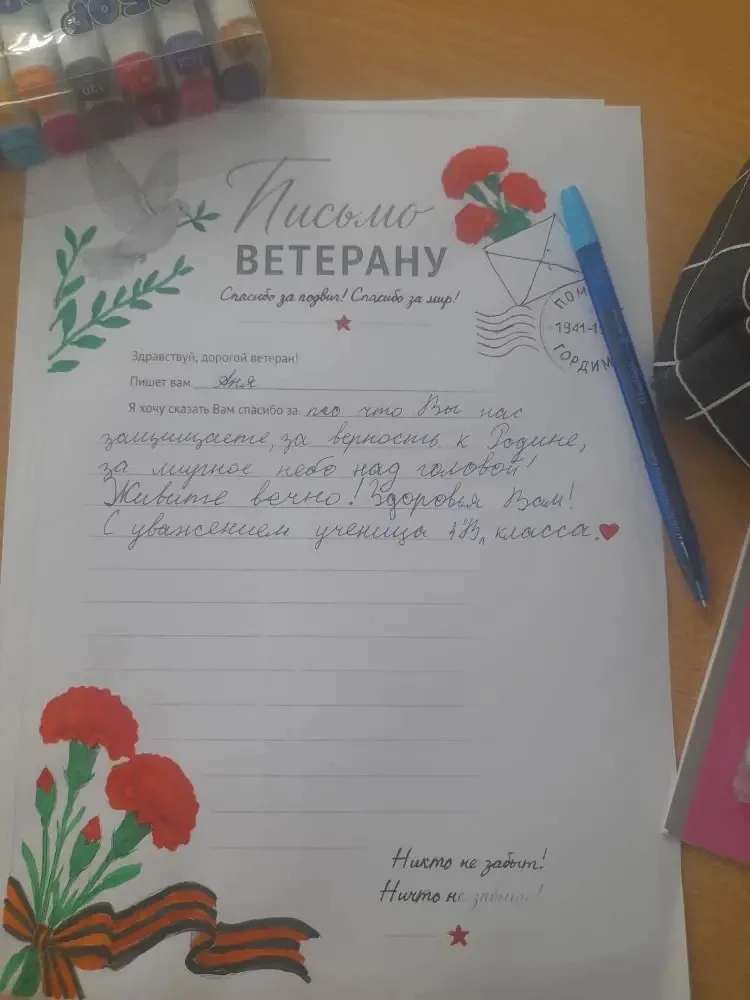 Письмо
ВЕТЕРАНУ
Спасибо за подвиг! Спасибо за мир!
ПОМ
1941-1
ГОРДИМ
Здравствуй, дорогой ветеран!
Пишет вам Аня
Я хочу сказать Вам спасибо за то что Вы нас
защищаете, за верность к Родине,
за мирное небо над головой!
Живите вечно! Здоровья Вам!
С уважением ученица 4"В" класса.
Никто не забыт!
Ничто не забыто!